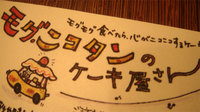 モグモグ食べたら、心がニコニコするケーキ
モグニコタンの
ケーキ屋さん